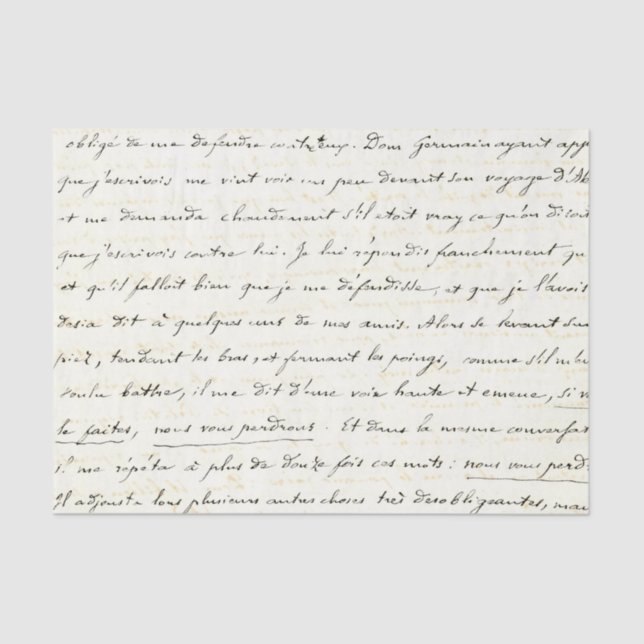 obligé de me defendre contr'eux. Dom Germain ayant app
que j'escrivois me vint voir un peu devant son voyage d'Al
et me demanda chaudement s'il etoit vray ce qu'on disoit
que j'escrivois contre lui. Je lui répondis franchement qu
et qu'il falloit bien que je me défendisse, et que je l'avois
desia dit à quelques uns de mes amis. Alors se levant sur
piez, tendant les bras, et fermant les poings, comme s'il m'eu
voulu battre, il me dit d'une voix haute et emeue, si v
le faites, nous vous perdrons. Et dans la mesme conversat
il me répéta à plus de douze fois ces mots: nous vous perd
Il adjousta lors plusieurs autres choses très desobligeantes, mai